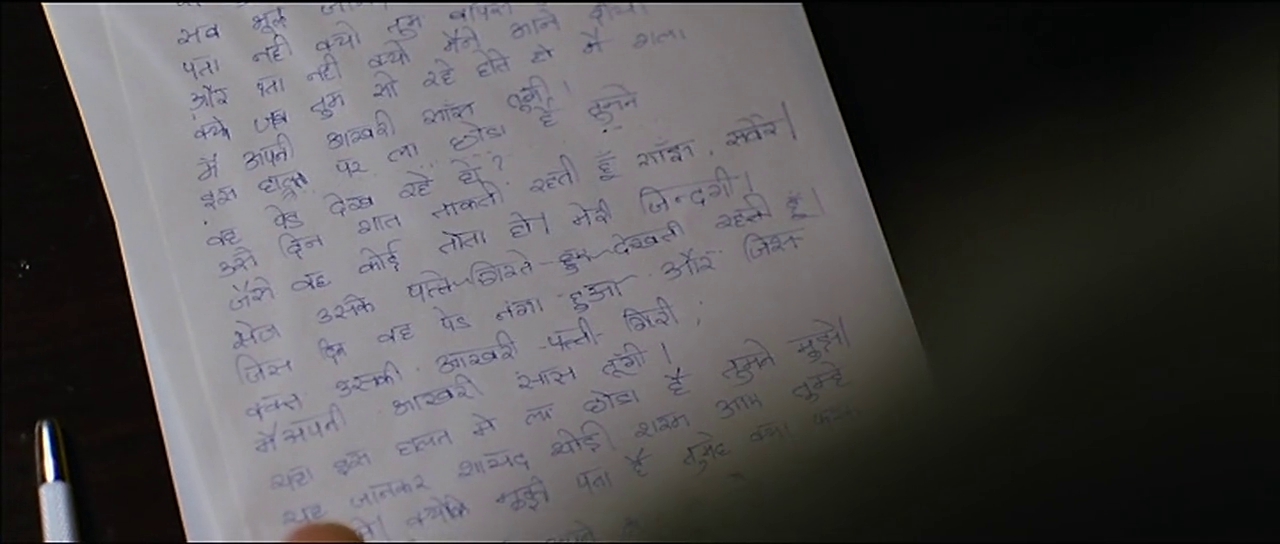 सब भूल
पता नही क्यो तुम वापस
और पता नही क्यो मैने आने दीया
क्यो जब तुम सो रहे होते हो मै गला
मै अपनी आखरी साँस लूगी।
इस हालत पर ला छोडा है तुमने
वह पेड देख रहे हो?
उसे दिन रात ताकती रहती हूँ साँझ, सवेरे।
जैसे वह कोई तोता हो। मेरी जिन्दगी।
रोज उसके पत्ते गिरते हुए देखती रहती हूँ।
जिस दिन वह पेड नंगा हुआ और जिस
वक्त उसकी आखरी पत्ती गिरी,
मै अपनी आखरी सांस लूँगी।
यहा इस हालत मे ला छोडा है तुमने मुझे।
यह जानकर शायद थोडी शरम आए तुम्हे
क्योकि मुझे पता है तुम्हे क्या